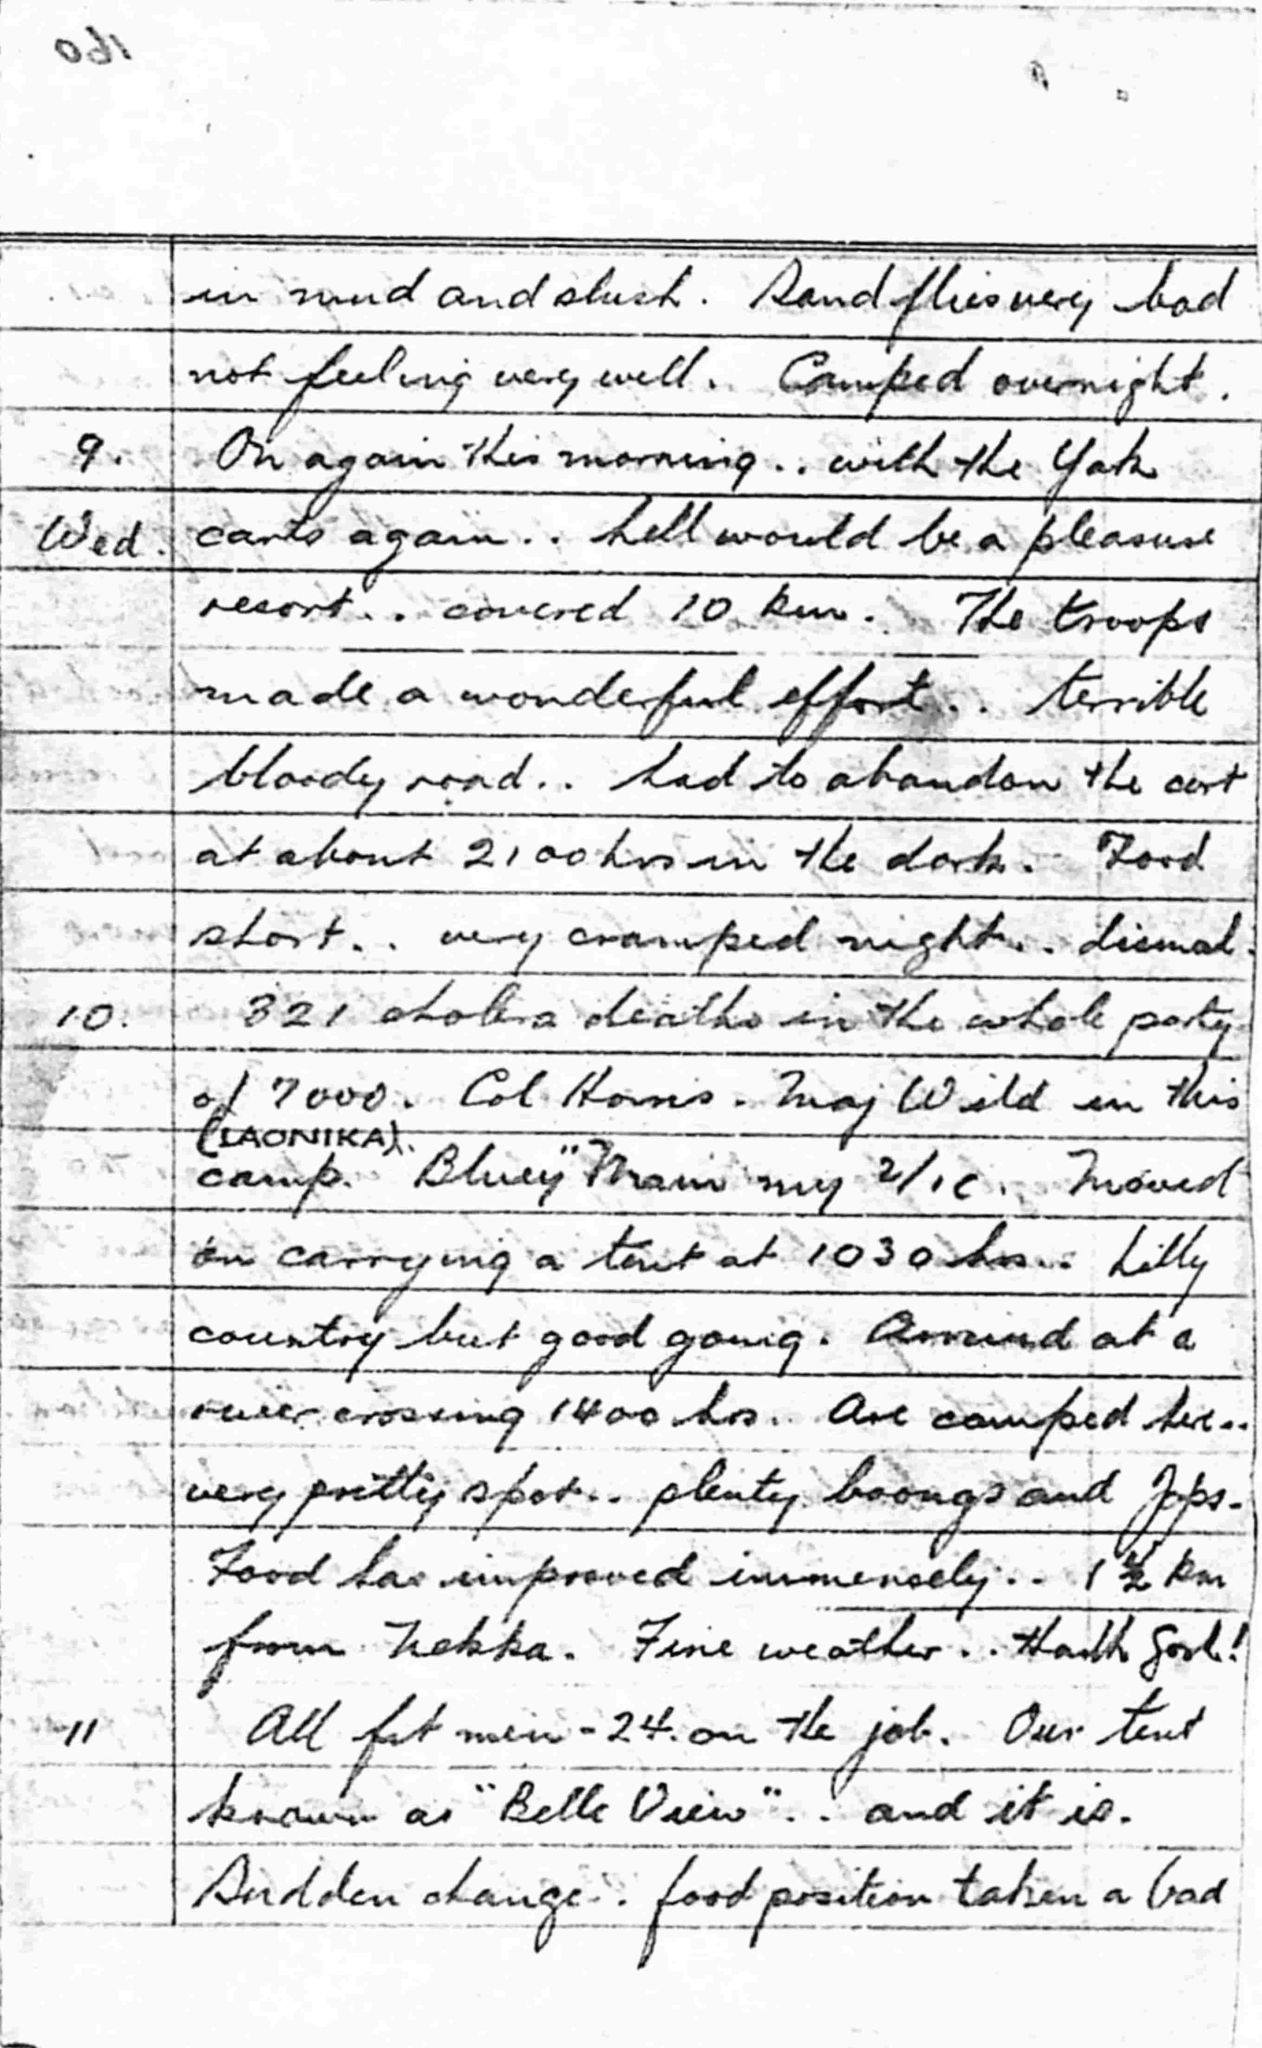 160
in mud and slush. Sand flies very bad
not feeling very well. Camped overnight.
9. On again this morning.. with the Yak
Wed. carts again.. hell would be a pleasure
resort.. covered 10 km. The troops
made a wonderful effort.. terrible
bloody road.. had to abandon the cart
at about 2100 hrs in the dark. Food
short.. very cramped night.. dismal.
10. 321 cholera deaths in the whole party
of 7000. Col Harris. Maj Wild in this
(LAONIKA).
camp. Bluey" Main my 2/ic. Moved
on carrying a tent at 1030 hrs.. hilly
country but good going. Arrived at a
river crossing 1400 hrs.. Are camped here..
very pretty spot.. plenty boongs and Japs.
Food has improved immensely.. 1½ km
from Nekka. Fine weather.. thank God!
11 All fit men - 24. on the job. Our tent
known as "Belle View".. and it is.
Sudden change.. food position taken a bad